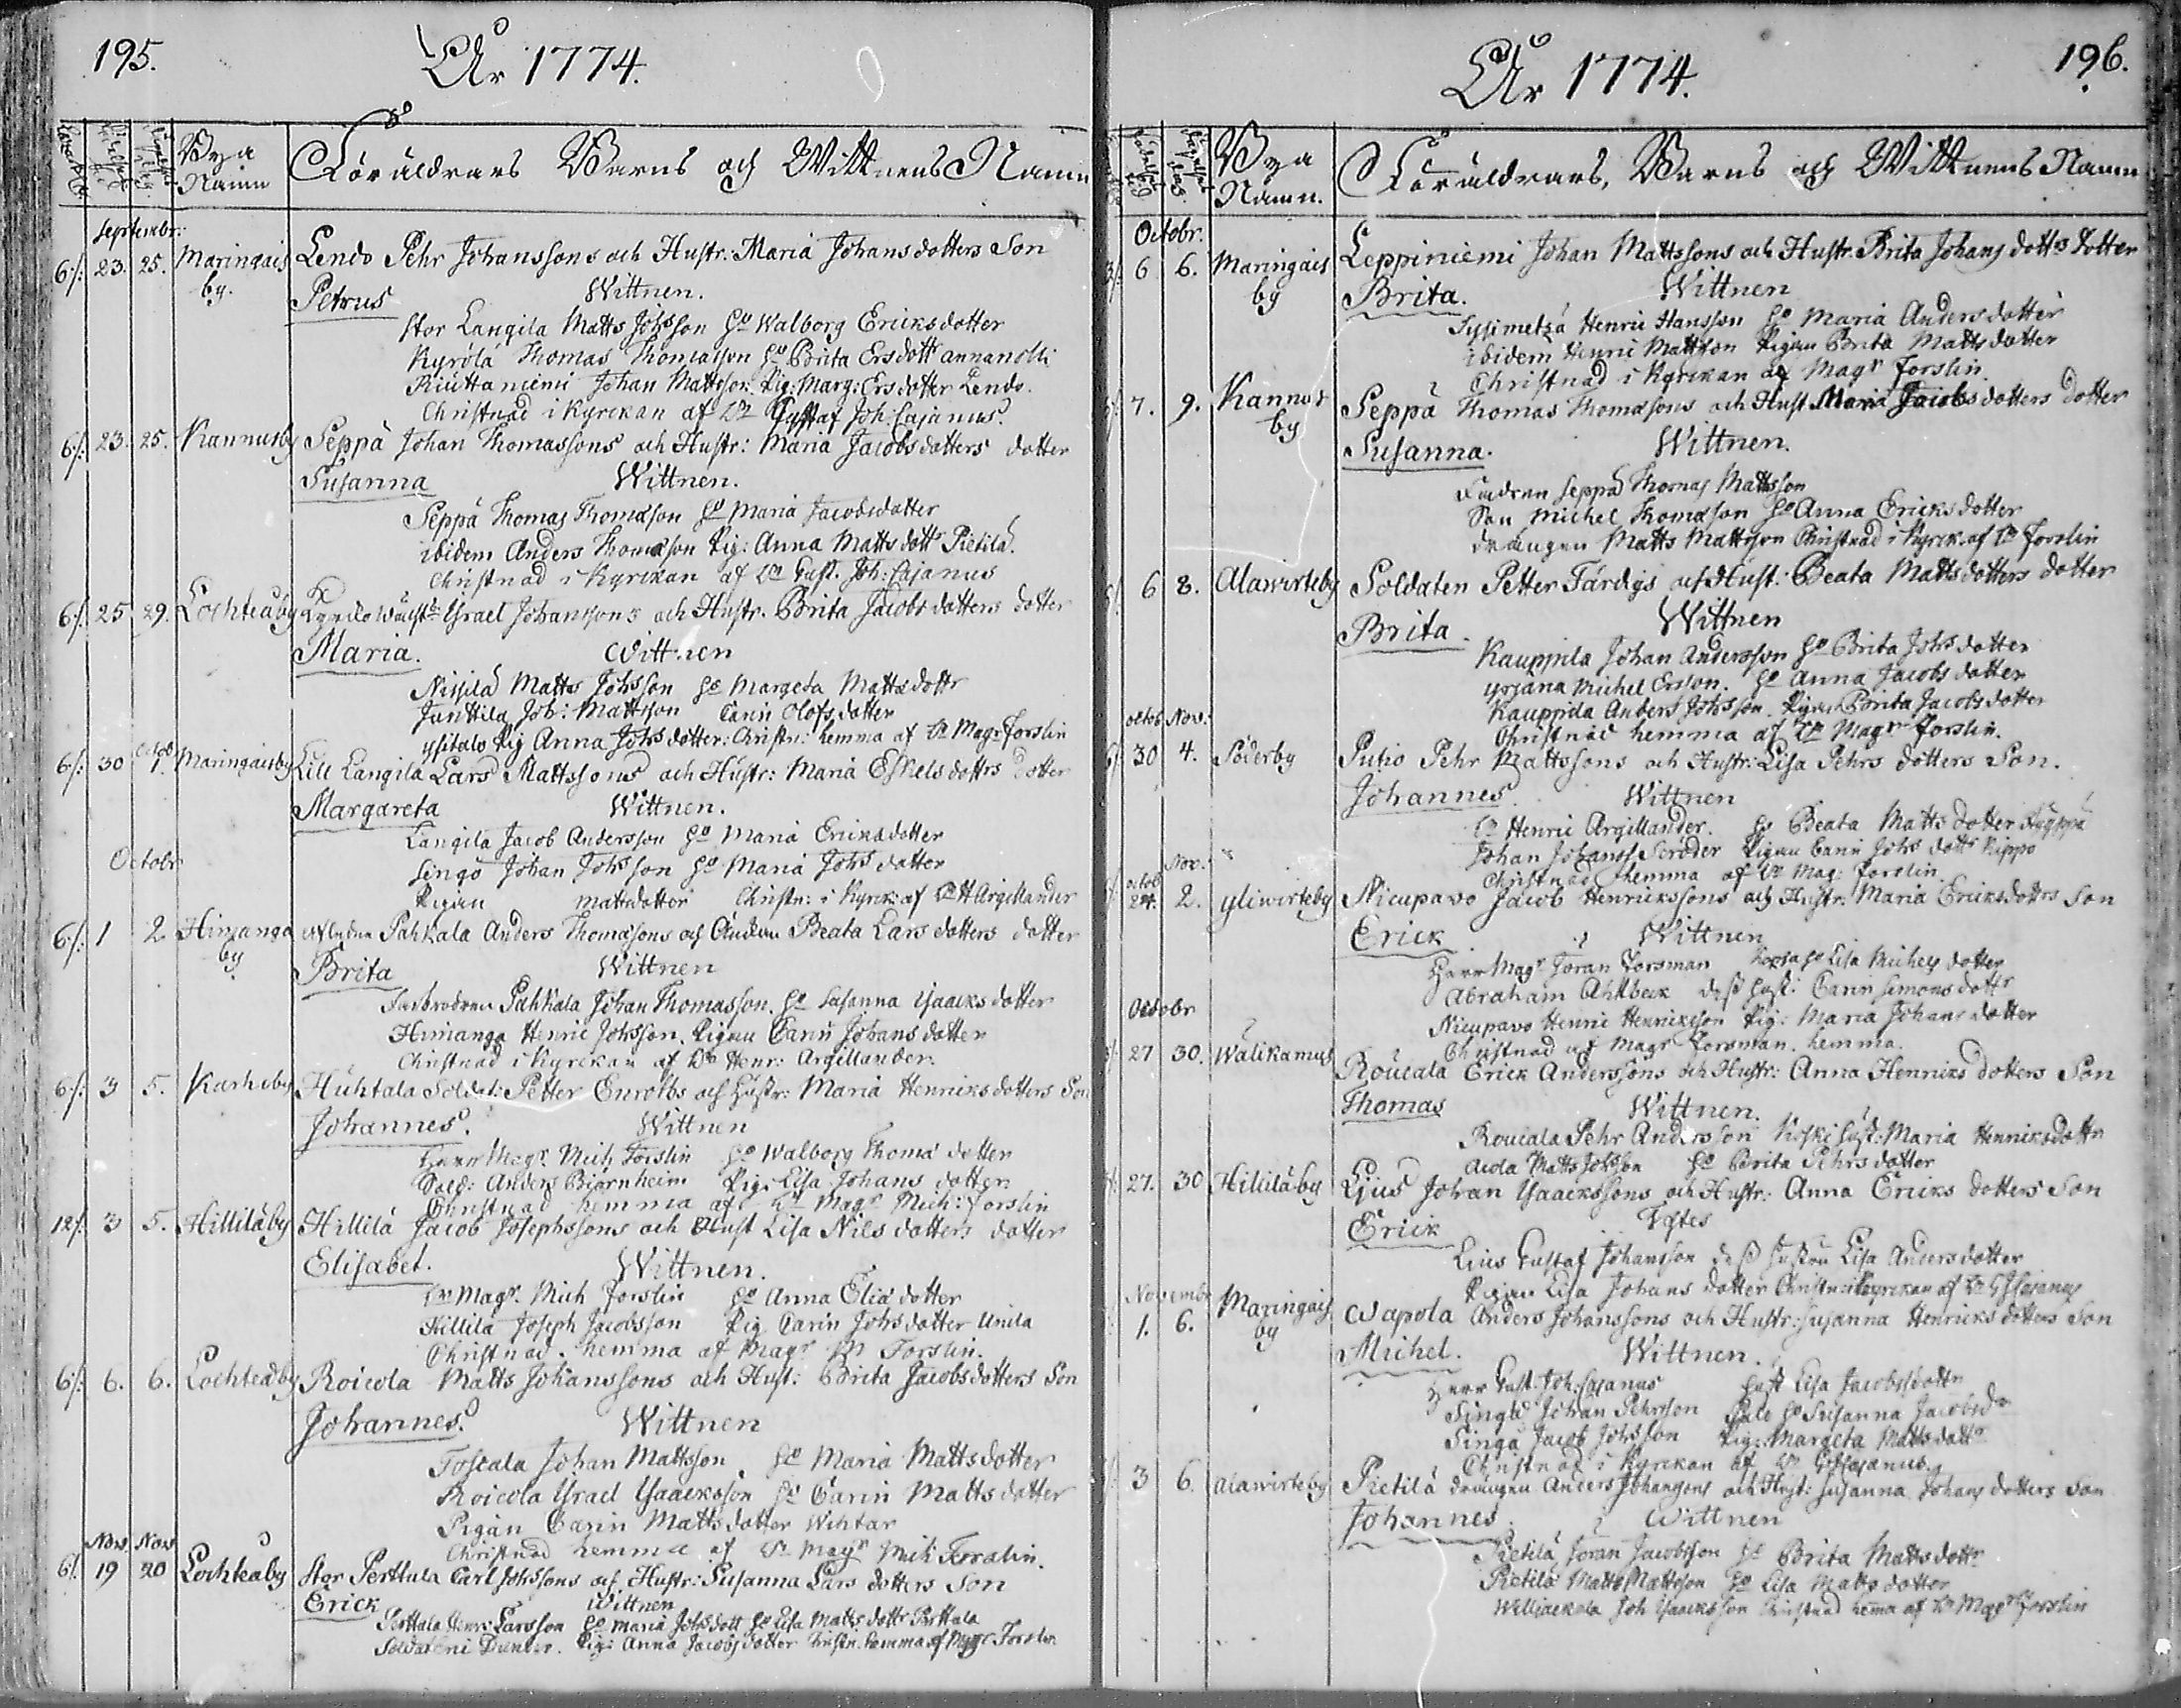 195.
År 1774.
Bya Namn
Föräldrars Barns och Wittnens Namn
Septembr:
6/: 23. 25. Maringais by. Lendo Pehr Johanssons och Hustr: Maria Johansdotters Son
Petrus Wittnen.
Stor Langila Matts Johsson Ho Walborg Ericksdotter
Kyrölä Thomas Thomasson Ho Brita Ersdottr
Riuttaniemi Johan Mattsson Pig: Marg: Ersdotter Lendo.
Christnad i Kyrckan af Hr Gustaf Joh: Cajanus.
6/: 23. 25. Kannusby Seppä Johan Thomassons och Hustr: Maria Jacobsdotters dotter
Susanna Wittnen.
Seppä Thomas Thomasson Ho Maria Jacobsdotter
ibidem Anders Thomasson Pig: Anna Mattsdottr Pietilä.
Christnad i Kyrckan af Hr Gust. Joh: Cajanus
6/: 25 29. Lochteåby Israel Johanssons och Hustr. Brita Jacobsdotters dotter
Maria. Wittnen
Nissilä Matts Johsson Ho Margeta Mattsdottr
Junttila Joh: Mattsson Carin Olofsdotter
Ysitalo Pig Anna Johsdotter: Christn: hemma af Hr Magr Forslin
6/: 30 Octob 1. Maringaisby Lill Langila Lars Mattssons och Hustr: Maria Eskelsdottrs dotter
Margareta Wittnen.
Langila Jacob Andersson Ho Maria Ericksdotter
Singo Johan Johsson Ho Maria Johsdotter
Pigan Mattsdotter Christn: i Kyrck: af Hr H Argillander
Octobr
6/: 1 2 Himanga by Pahkala Anders Thomassons och Beata Larsdotters dotter
Brita Wittnen
Farbrodren Pahkala Johan Thomasson. Ho Susanna Isaacksdotter
Himanga Henric Johsson. Pigan Carin Johansdotter
Christnad i Kyrckan af Hr Henr: Argillander.
6/: 3 5. Karhiby Huhtala Soldat: Petter Enroths och Hustr: Maria Henriksdotters Son
Johannes. Wittnen
Herr Magr. Mich Forslin Ho Walborg Thomædotter
Sold: Anders Biörnheim Pig: Lisa Johansdotter
Christnad hemma af Hr Magr Mich: Forslin
12/: 3 5. Hilliläby Hillilä Jacob Josephssons och Hust Lisa Nilsdotters dotter
Elisabet. Wittnen.
Hr Magr. Mich Forslin Ho Anna Eliædotter
Hillilä Joseph Jacobsson Pig Carin Johsdotter Unila
Christnad hemma af Magr M Forslin.
6/: 6. 6. Lochteåby Roicola Matts Johanssons och Hust: Brita Jacobsdotters Son
Johannes. Wittnen
Toscala Johan Mattsson Ho Maria Mattsdotter
Roicola Israel Isaacksson Ho Carin Mattsdotter
Pigan Carin Mattsdotter Wihtar
Christnad hemma af Hr Magr Mich Forslin.
Nov. Nov
6/. 19 20 Lochteåby Stor Perttula Carl Johssons och Hustr: Susanna Larsdotters Son
Erick Wittnen
Perttala Henr: Larsson Ho Maria Johsdott Ho Lisa Mattsdottr Perttala
Dunder. Pig: Anna Jacobsdotter Christn. hemma af Magr Forslin
196.
År 1774.
Bya Namn.
Föräldrars, Barns och Wittnens Namn
Octobr.
6 6. Maringais by Leppiniemi Johan Mattssons och Hustr. Brita Johansdottrs dotter
Brita. Wittnen
Sysimetsä Henric Hansson Ho Maria Andersdotter
ibidem Henric Mattsson Pigan Brita Mattsdotter
Christnad i Kyrckan af Magr Forslin.
7. 9. Kannus by Seppä Thomas Thomassons och Hust. Maria Jacobsdotters dotter
Susanna. Wittnen.
Fadren Seppä Thomas Mattsson
Son Michel Thomasson Ho Anna Ericksdotter
drängen Matts Mattsson Christnad i Kyrck. af Hr Forslin
6 8. Alawirteby Soldaten Petter Färdigs och Hust: Beata Mattsdotters dotter
Brita. Wittnen
Kauppila Johan Andersson Ho Brita Johsdotter
Yrjänä Michel Ersson. Ho Anna Jacobsdotter
Kauppila Anders Johsson. Pigan Brita Jacobsdotter
Christnad hemma af Hr Magr Forslin.
octob Nov:
30 4. Söderby Putio Pehr Mattssons och Hustr: Lisa Pehrsdotters Son.
Johannes. Wittnen
Hr Henric Argillander. Ho Beata Mattsdotter
Johan Johanss Scröder Pigan Carin Johsdottr
Christnad hemma af Hr Mag: Forslin.
octob Nov:
24. 2. Yliwirteby Nicupavo Jacob Henrikssons och Hustr: Maria Ericksdottrs Son
Erick Wittnen
Herr Magr Göran Forsman Ho Lisa Michelsdotter
Abraham Ahlbeck dess hust: Carin Simonsdottr
Nicupavo Henric Henricksson Pig: Maria Johansdotter
Christnad af Magr Forsman. hemma.
Octobr
27 30. Wälikannus Roucala Erick Anderssons och Hustr: Anna Henricksdotters Son
Thomas Wittnen.
Roucala Pehr Andersson Hust: Maria Henricksdottr
Aida Matts Johsson Ho Brita Pehrsdotter
27. 30 Hilliläby Ljus Johan Isaackssons och Hustr: Anna Ericksdotters Son
Erick Testes
Ljus Gustaf Johansson dess hustru Lisa Andersdotter
Pigan Lisa Johansdotter Christn: i Kyrckan af Hr G J Cajanus
Novembr
1. 6. Maringais by Wapola Anders Johanssons och Hustr: Susanna Henricksdotters Son
Michel. Wittnen.
Herr Gust: Joh: Cajanus Hust Lisa Jacobsdottr
Singo Johan Pehrsson Ho Susanna Jacobsdr
Singo Jacob Johsson Pig: Margeta Mattsdottr
Christnad i Kyrckan af Hr G J Cajanus.
3 6. Alawirteby Pietilä drängen Anders Johanssons och Hust: Susanna Johansdotters Son
Johannes. Wittnen
Pietilä Göran Jacobsson Ho Brita Mattsdottr
Pietilä Matts Mattsson Ho Lisa Mattsdotter
Williackala Joh Isaacksson Christnad hema af Hr Magr Forslin